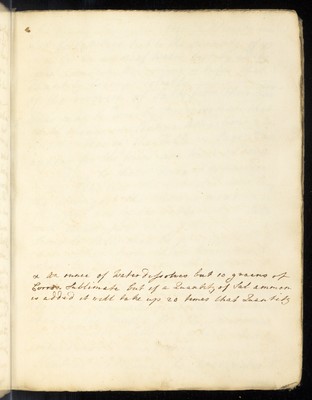 x An ounce of Water dissolves but 10 graens of
Corros Sublimate but if a Quantity of Sal ammon
is added it will take up 20 times that Quantity